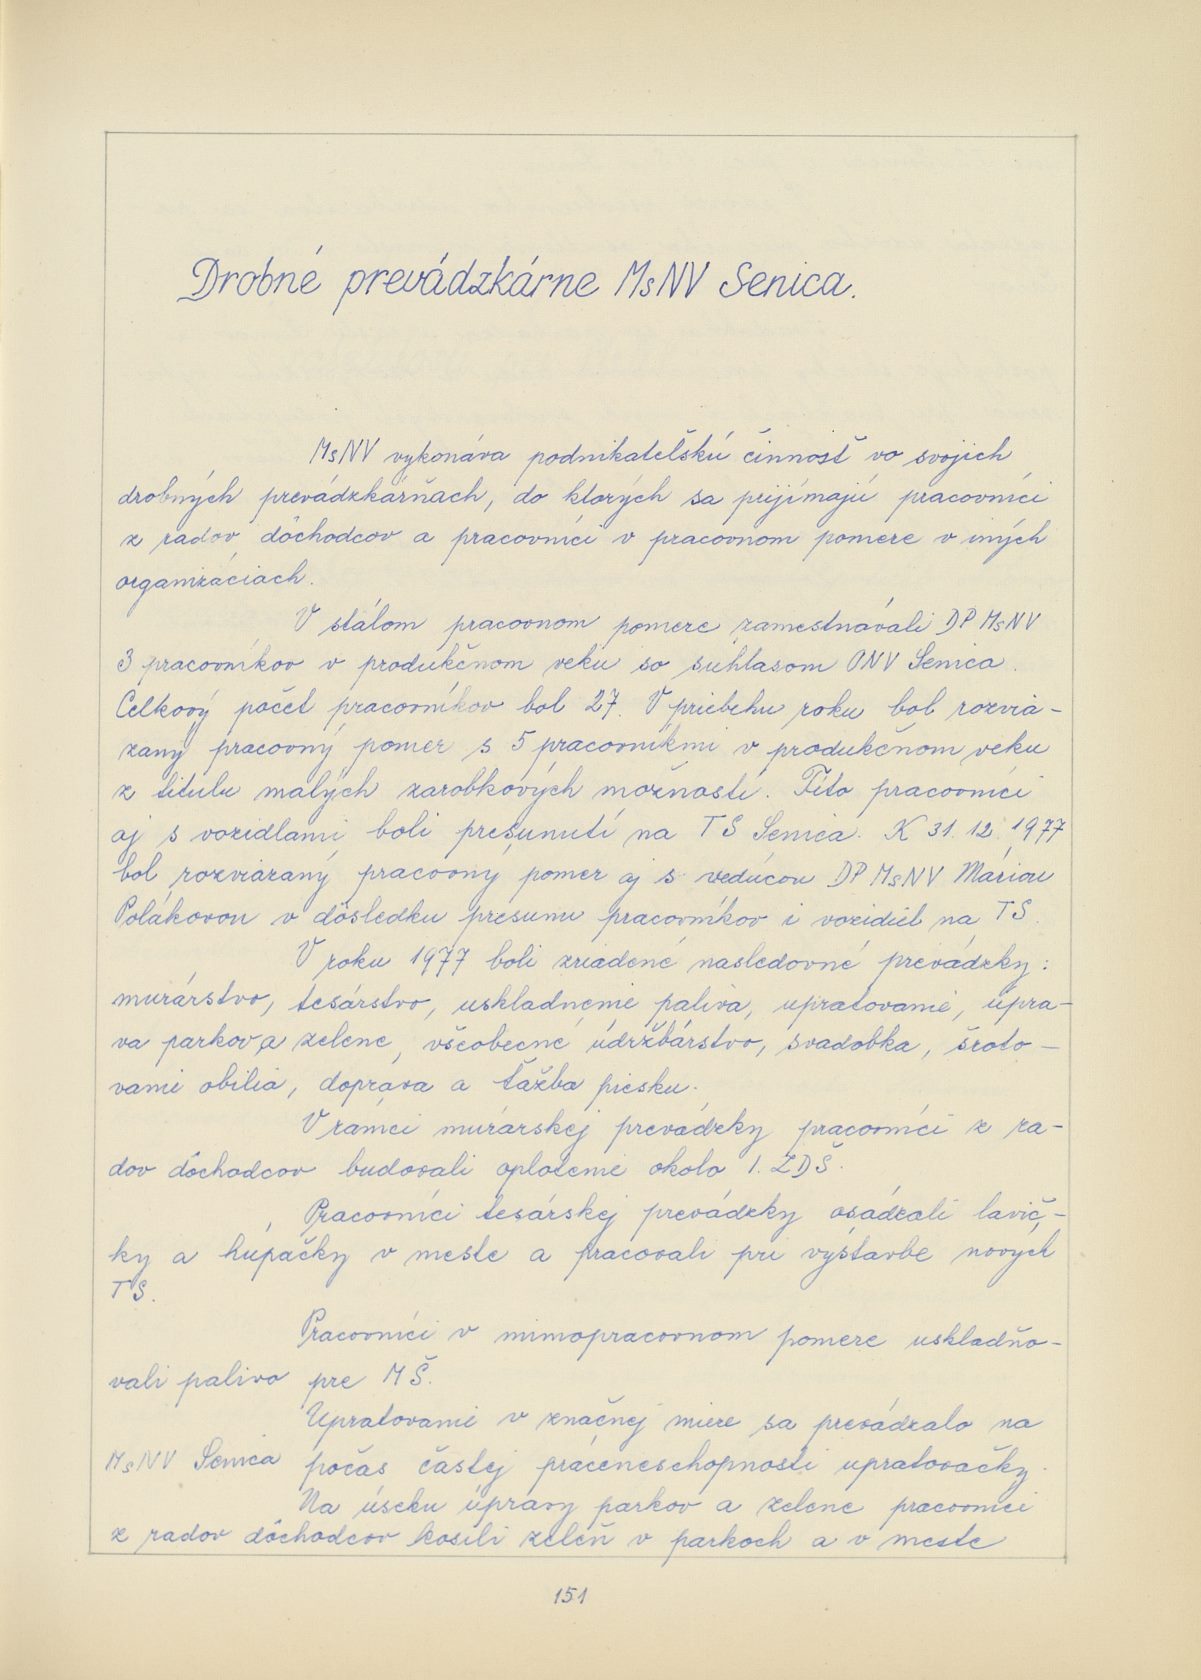 Drobné prevádzkárne MsNV Senica.
MsNV vykonáva podnikateľskú činnosť vo svojich
drobných prevádzkárňach, do ktorých sa prijímajú pracovníci
z radov dôchodcov a pracovníci v pracovnom pomere v iných
organizáciach.
V stálom pracovnom pomere zamestnávali DP MsNV
3 pracovníkov v produkčnom veku so súhlasom ONV Senica.
Celkový počet pracovníkov bol 27. V priebehu roku bol rozvia-
zaný pracovný pomer s 5 pracovníkmi v produkčnom veku
z titulu malých zarobkových možností. Títo pracovníci
aj s vozidlami boli presunutí na TS Senica. K 31. 12. 1977
bol rozviazaný pracovný pomer aj s vedúcou DP MsNV Máriou
Polákovou v dôsledku presunu pracovníkov i vozidiel na TS.
V roku 1977 boli zriadené nasledovné prevádzky:
murárstvo, tesárstvo, uskladnenie paliva, upratovanie, úpra-
va parkov a zelene, všeobecné údržbárstvo, svadobka, šroto-
vanie obilia, doprava a ťažba piesku.
V rámci murárskej prevádzky pracovníci z ra-
dov dôchodcov budovali oplotenie okolo I. ZDŠ.
Pracovníci tesárskej prevádzky osádzali lavič-
ky a húpačky v meste a pracovali pri výstavbe nových
TS.
Pracovníci v mimopracovnom pomere uskladňo-
vali palivo pre MŠ.
Upratovanie v značnej miere sa prevádzalo na
MsNV Senica počas častej práceneschopnosti upratovačky.
Na úseku úpravy parkov a zelene pracovníci
z radov dôchodcov kosili zeleň v parkoch a v meste
151